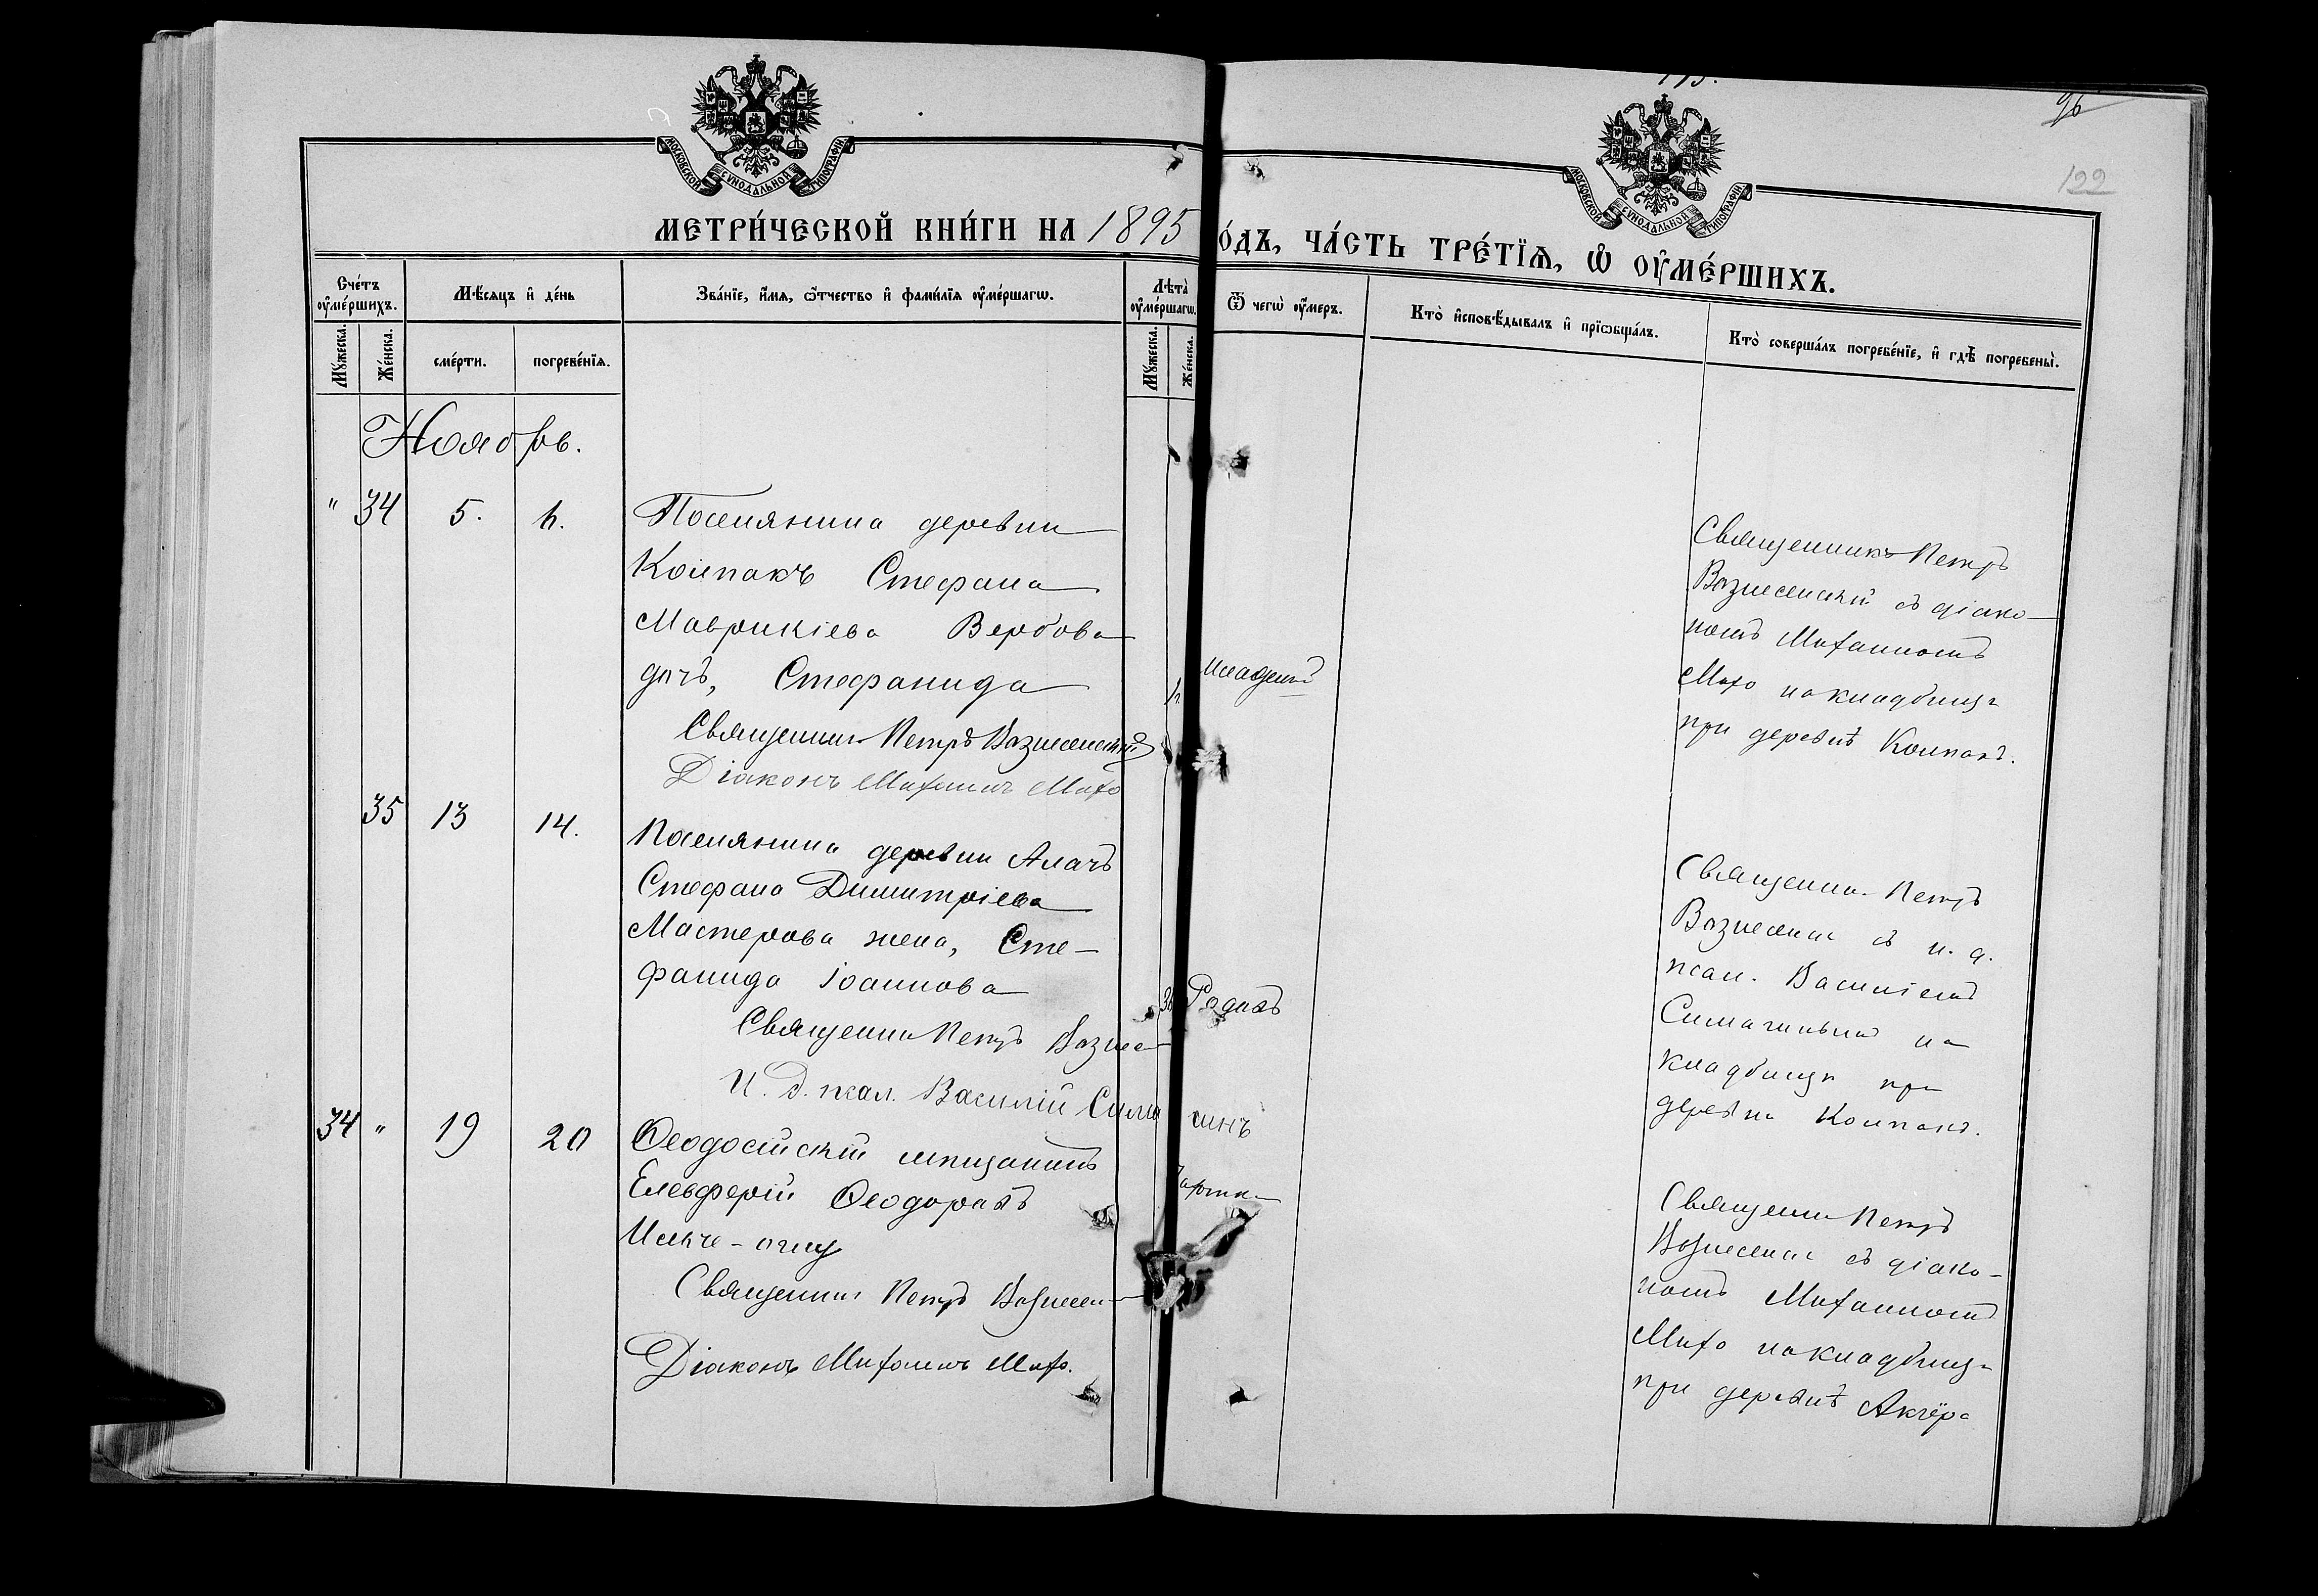 195.
96
122
МОСКОВСКОЙ СѴНОДАЛЬНОЙ ТИПОГРАФІИ
МОСКОВСКОЙ СѴНОДАЛЬНОЙ ТИПОГРАФІИ
МЕТРИ́ЧЕСКОЙ КНИ́ГИ НА 1895
О́ДЪ, ЧА́СТЬ ТРЕ́ТІѦ, Ѽ ОУМЕ́РШИХЪ.
Сче́тъ оуме́ршихъ.
Мꙋжеска.
Же́нска.
Мѣ́сяцъ и де́нь
сме́рти.
погребе́нїя.
Зва́нїе, и́мя, ѻ́тчество и фами́лїя оуме́ршагѡ.
Лѣта̀ оуме́ршагѡ.
Мꙋжеска.
Же́нска.
Ѿ чегѡ̀ оу́меръ.
Кто̀ исповѣ́дывалъ и прїѡбща́лъ.
Кто̀ соверша́лъ погребе́нїе, и гдѣ̀ погребены̀.
Ноябрь.
" 34 5. 6.
Поселянина деревни
Колпакъ Стефана
Маврикіева Вербова
дочь, Стефанида
Священникъ Петръ Вознесенскій
Діаконъ Михаилъ Михо
Младенч
Священникъ Петръ
Вознесенскій съ діако-
номъ Михаиломъ
Михо на кладбищѣ
при деревнѣ Колпакъ.
35 13 14.
Поселянина деревни Алачъ
Стефана Димитріева
Мастерова жена, Сте-
фанида Іоаннова
Священни Петръ Возне
И. д. псал. Василій Сима
синъ
Родовъ
Священни. Петръ
Вознесенс съ и. д.
псал. Василіемъ
на
кладбищѣ при
деревнѣ Колпакъ.
34 " 19 20
Ѳеодосійскій мѣщанинъ
Елевферій Ѳеодоровъ
Священникъ Петръ Вознесен
Діаконъ Михаилъ Михо.
Священни Петръ
Вознесенс съ діако-
номъ Михаиломъ
Михо на кладбищѣ
при деревнѣ